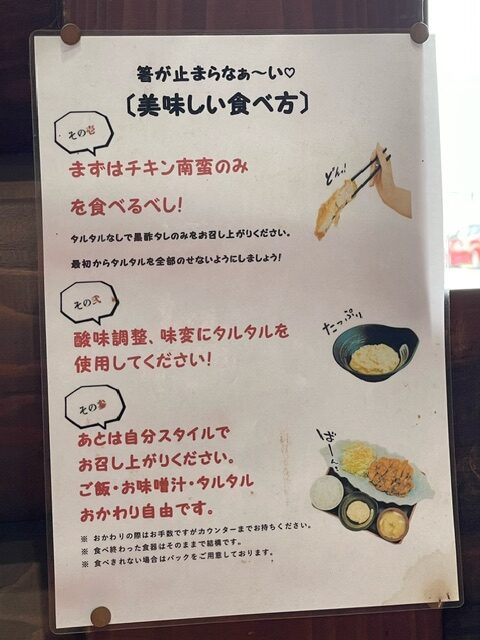 箸が止まらなぁ～い♡
〔美味しい食べ方〕
その壱
まずはチキン南蛮のみ
を食べるべし!
どん!
タルタルなしで黒酢タレのみをお召し上がりください。
最初からタルタルを全部のせないようにしましょう!
その弐
酸味調整、味変にタルタルを
使用してください!
たっぷり
その参
あとは自分スタイルで
お召し上がりください。
ご飯・お味噌汁・タルタル
おかわり自由です。
※ おかわりの際はお手数ですがカウンターまでお持ちください。
※ 食べ終わった食器はそのままで結構です。
※ 食べきれない場合はパックをご用意しております。